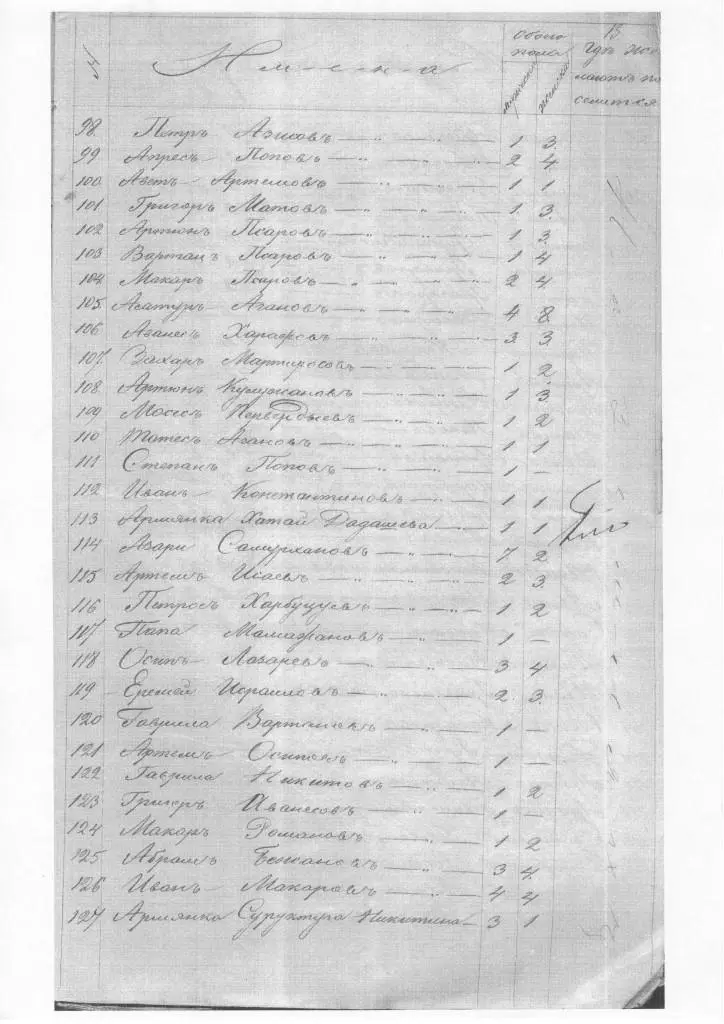 13
№ Имена Обоего пола Гдѣ же
мужеска женска лаютъ по
селится
98. Петръ Азисовъ — „ — „ — 1 3.
99 Апресъ Поповъ — „ — „ — 2 4
100 Аветъ Артемовъ — „ — „ — 1 1
101 Григоръ Матовъ — „ — „ — 1 3.
102 Артюнъ Псаровъ — „ — „ — 1 3.
103 Вартанъ Псаровъ — „ — „ — 1 4
104. Макаръ Псаровъ — „ — „ — 2 4
105. Асатуръ Агановъ — „ — „ — 4 8.
106 Аванесъ — „ — „ — 3. 3.
107. Захаръ Мартиросовъ — „ — „ — 1 2
108 Артюнъ — „ — „ — 1 3.
109 Мосесъ — „ — „ — 1 2
110 Матесъ Агановъ — „ — „ — 1 1
111 Степанъ Поповъ — „ — „ — 1 —
112 Иванъ Константиновъ — „ — „ — 1 1
113 Армянка Хатай Дадашева — „ — 1 1
114 Азари Самурхановъ — „ — „ — 7 2
115 Артемъ Исаевъ — „ — „ — 2 3.
116 Петросъ Харбуцуевъ — „ — „ — 1 2
117 Папа — „ — 1 —
118 Осипъ Лазаревъ — „ — „ — 3 4
119 Еремей Исраиловъ — „ — „ — 2. 3.
120 Гаврила Вартановъ — „ — 1 —
121 Артемъ — „ — 1 —
122 Гаврила Никитовъ — „ — 1 2
123 Григоръ Иванесовъ — „ — 1 —
124 Макаръ Романовъ — „ — 1 2
125 Абрамъ Бежановъ — „ — 3 4.
126 Иванъ Макаровъ — „ — 4 4
127 Армянка Никитина — 3 1